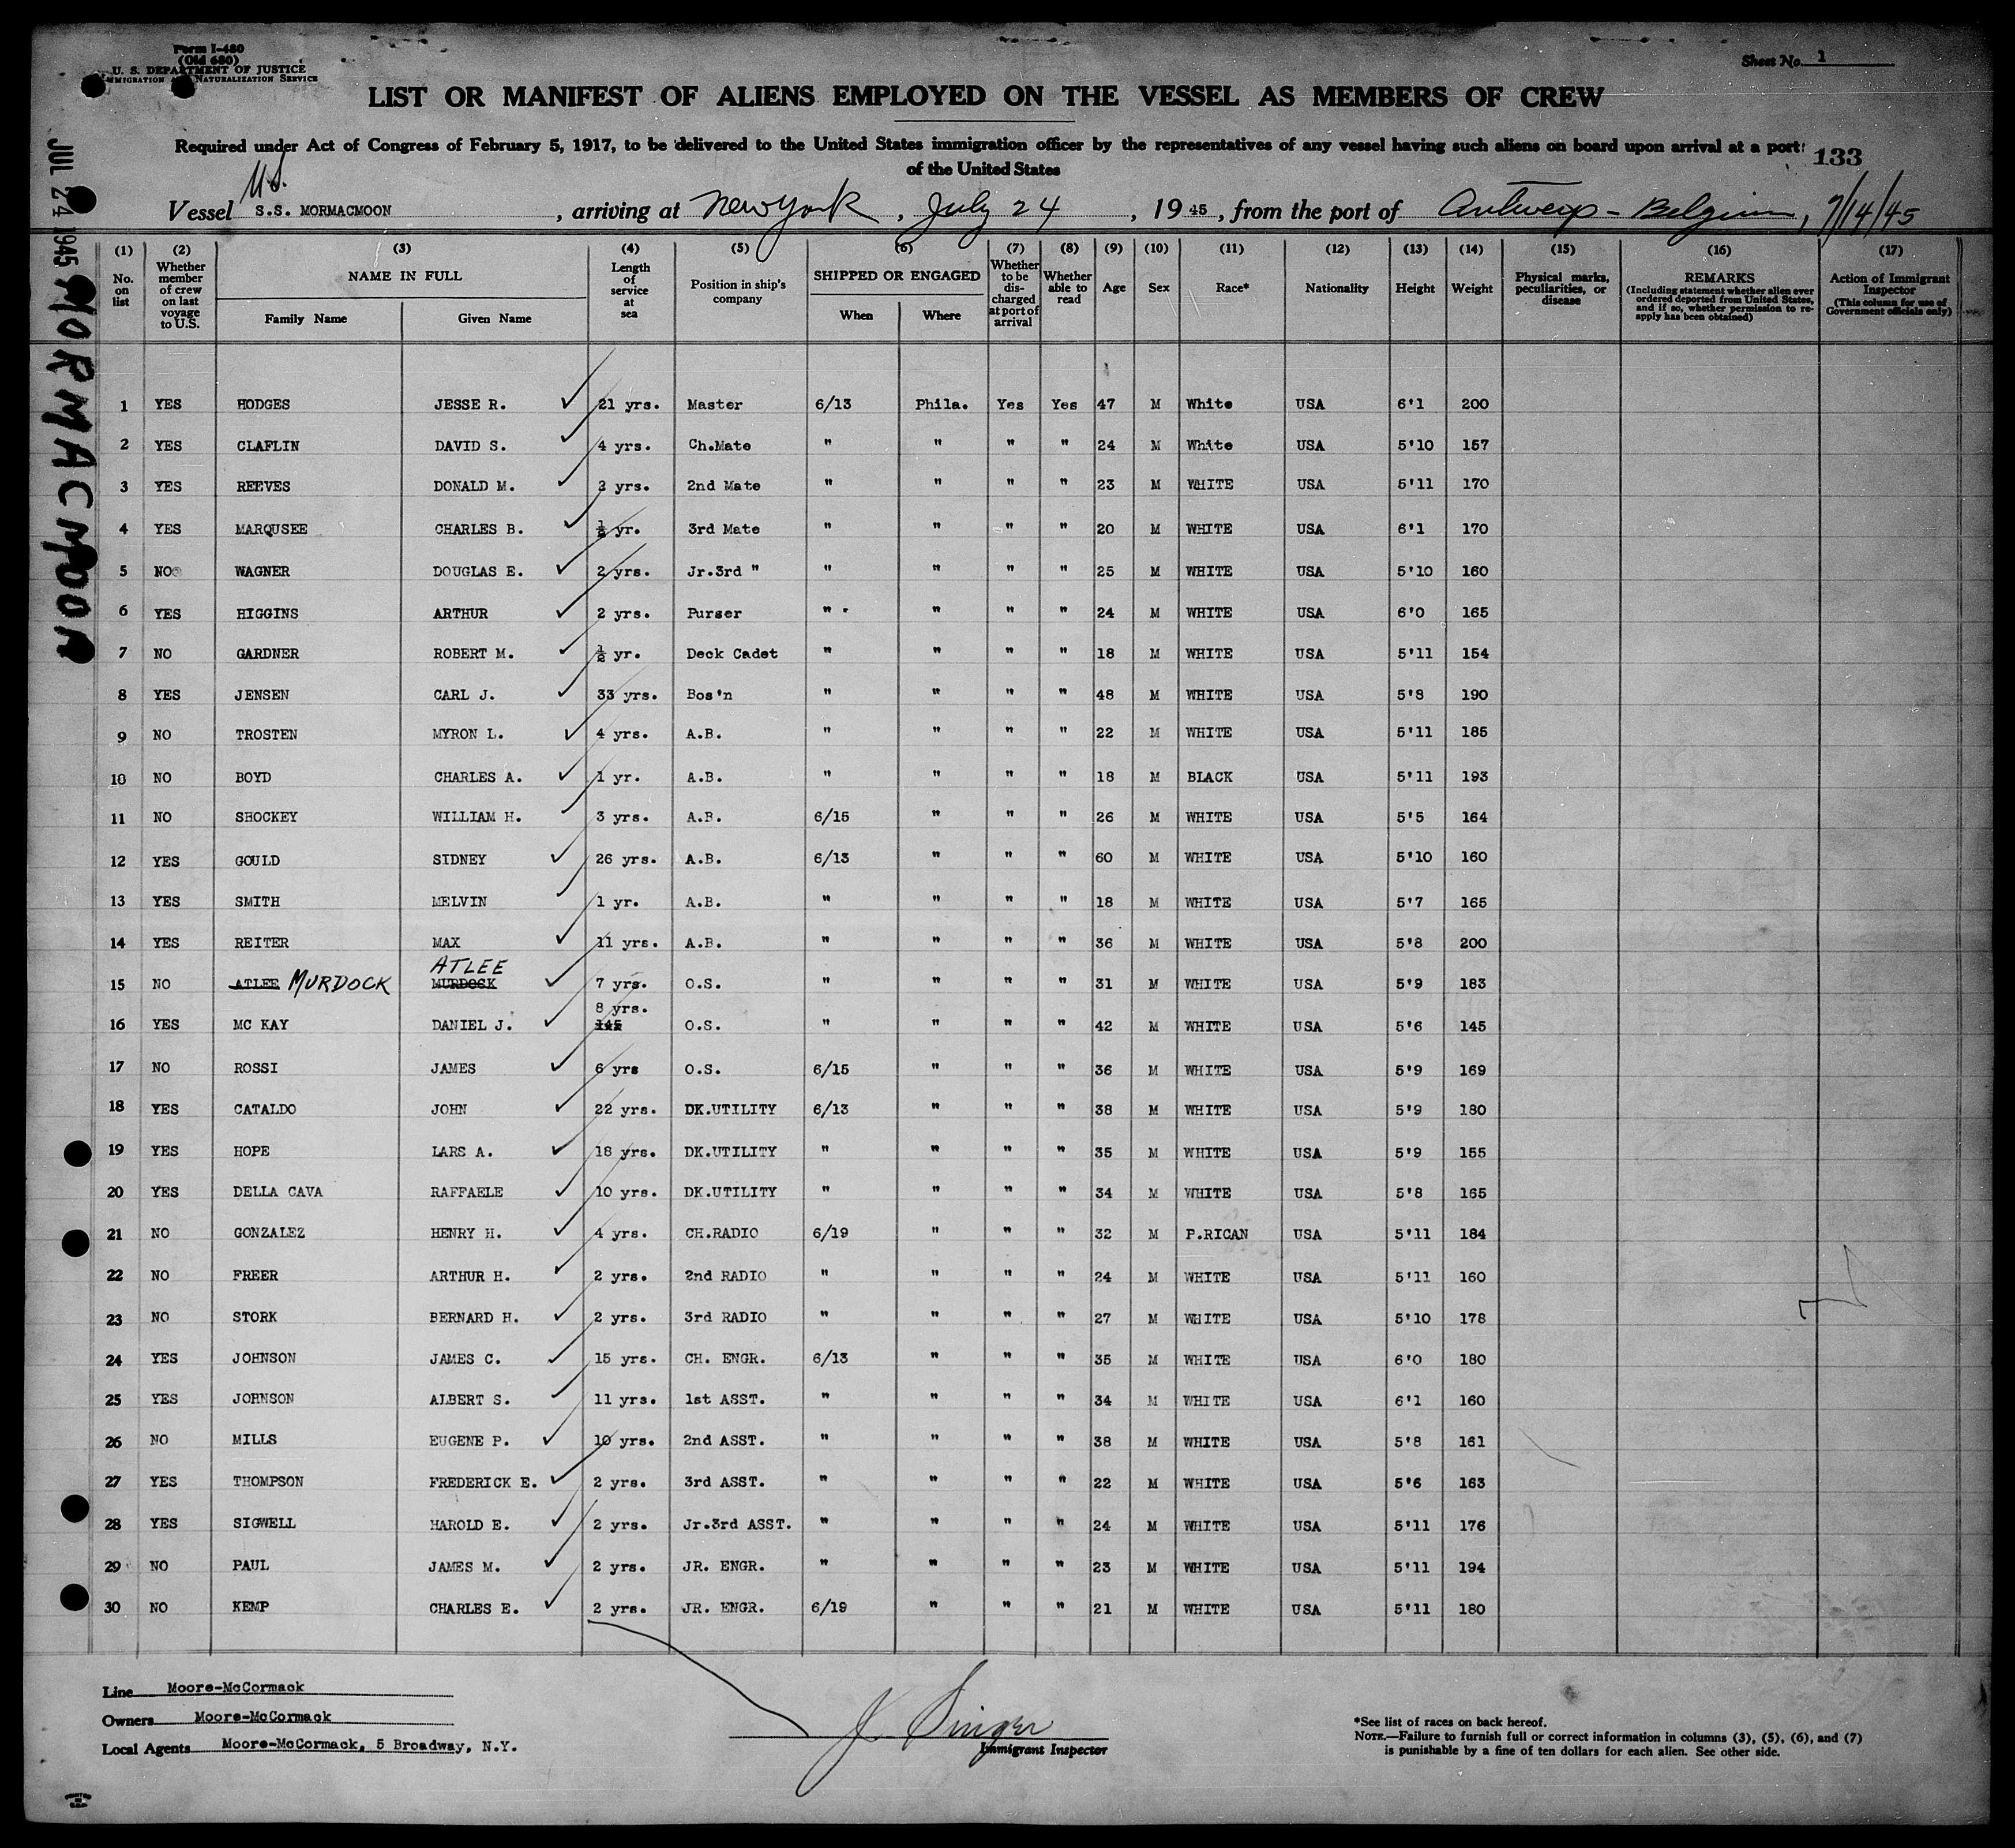 Form I-480
(Old 680)
U. S. DEPARTMENT OF JUSTICE
IMMIGRATION AND NATURALIZATION SERVICE
Sheet No. 1
LIST OR MANIFEST OF ALIENS EMPLOYED ON THE VESSEL AS MEMBERS OF CREW
Required under Act of Congress of February 5, 1917, to be delivered to the United States immigration officer by the representatives of any vessel having such aliens on board upon arrival at a port
of the United States
133
U.S.
Vessel S.S. MORMACMOON, arriving at New York, July 24, 1945, from the port of Antwerp - Belgium, 7/14/45
JUL 24 1945
MORMACMOON
(1) (2) (3) (4) (5) (6) (7) (8) (9) (10) (11) (12) (13) (14) (15) (16) (17)
No. on list
Whether member of crew on last voyage to U.S.
NAME IN FULL
Family Name Given Name
Length of service at sea
Position in ship's company
SHIPPED OR ENGAGED
When Where
Whether to be discharged at port of arrival
Whether able to read
Age
Sex
Race*
Nationality
Height
Weight
Physical marks, peculiarities, or disease
REMARKS
(Including statement whether alien ever ordered deported from United States, and if so, whether permission to re-apply has been obtained)
Action of Immigrant Inspector
(This column for use of Government officials only)
1 YES HODGES JESSE R. 21 yrs. Master 6/13 Phila. Yes Yes 47 M White USA 6'1 200
2 YES CLAFLIN DAVID S. 4 yrs. Ch.Mate " " " " 24 M White USA 5'10 157
3 YES REEVES DONALD M. 3 yrs. 2nd Mate " " " " 23 M WHITE USA 5'11 170
4 YES MARQUSEE CHARLES B. ½ yr. 3rd Mate " " " " 20 M WHITE USA 6'1 170
5 NO WAGNER DOUGLAS E. 2 yrs. Jr.3rd " " " " " 25 M WHITE USA 5'10 160
6 YES HIGGINS ARTHUR 2 yrs. Purser " " " " 24 M WHITE USA 6'0 165
7 NO GARDNER ROBERT M. ½ yr. Deck Cadet " " " " 18 M WHITE USA 5'11 154
8 YES JENSEN CARL J. 33 yrs. Bos'n " " " " 48 M WHITE USA 5'8 190
9 NO TROSTEN MYRON L. 4 yrs. A.B. " " " " 22 M WHITE USA 5'11 185
10 NO BOYD CHARLES A. 1 yr. A.B. " " " " 18 M BLACK USA 5'11 193
11 NO SHOCKEY WILLIAM H. 3 yrs. A.B. 6/15 " " " 26 M WHITE USA 5'5 164
12 YES GOULD SIDNEY 26 yrs. A.B. 6/13 " " " 60 M WHITE USA 5'10 160
13 YES SMITH MELVIN 1 yr. A.B. " " " " 18 M WHITE USA 5'7 165
14 YES REITER MAX 11 yrs. A.B. " " " " 36 M WHITE USA 5'8 200
ATLEE
15 NO ATLEE MURDOCK MURDOCK 7 yrs. O.S. " " " " 31 M WHITE USA 5'9 183
8 yrs.
16 YES MC KAY DANIEL J. 145 O.S. " " " " 42 M WHITE USA 5'6 145
17 NO ROSSI JAMES 6 yrs O.S. 6/15 " " " 36 M WHITE USA 5'9 169
18 YES CATALDO JOHN 22 yrs. DK.UTILITY 6/13 " " " 38 M WHITE USA 5'9 180
19 YES HOPE LARS A. 18 yrs. DK.UTILITY " " " " 35 M WHITE USA 5'9 155
20 YES DELLA CAVA RAFFAELE 10 yrs. DK.UTILITY " " " " 34 M WHITE USA 5'8 165
21 NO GONZALEZ HENRY H. 4 yrs. CH.RADIO 6/19 " " " 32 M P.RICAN USA 5'11 184
22 NO FREER ARTHUR H. 2 yrs. 2nd RADIO " " " " 24 M WHITE USA 5'11 160
23 NO STORK BERNARD H. 2 yrs. 3rd RADIO " " " " 27 M WHITE USA 5'10 178
24 YES JOHNSON JAMES C. 15 yrs. CH. ENGR. 6/13 " " " 35 M WHITE USA 6'0 180
25 YES JOHNSON ALBERT S. 11 yrs. 1st ASST. " " " " 34 M WHITE USA 6'1 160
26 NO MILLS EUGENE P. 10 yrs. 2nd ASST. " " " " 38 M WHITE USA 5'8 161
27 YES THOMPSON FREDERICK E. 2 yrs. 3rd ASST. " " " " 22 M WHITE USA 5'6 163
28 YES SIGWELL HAROLD E. 2 yrs. Jr.3rd ASST. " " " " 24 M WHITE USA 5'11 176
29 NO PAUL JAMES M. 2 yrs. JR. ENGR. " " " " 23 M WHITE USA 5'11 194
30 NO KEMP CHARLES E. 2 yrs. JR. ENGR. 6/19 " " " 21 M WHITE USA 5'11 180
Line Moore-McCormack
Owners Moore-McCormack
Local Agents Moore-McCormack, 5 Broadway, N.Y.
J. Singer
Immigrant Inspector
*See list of races on back hereof.
NOTE.—Failure to furnish full or correct information in columns (3), (5), (6), and (7)
is punishable by a fine of ten dollars for each alien. See other side.